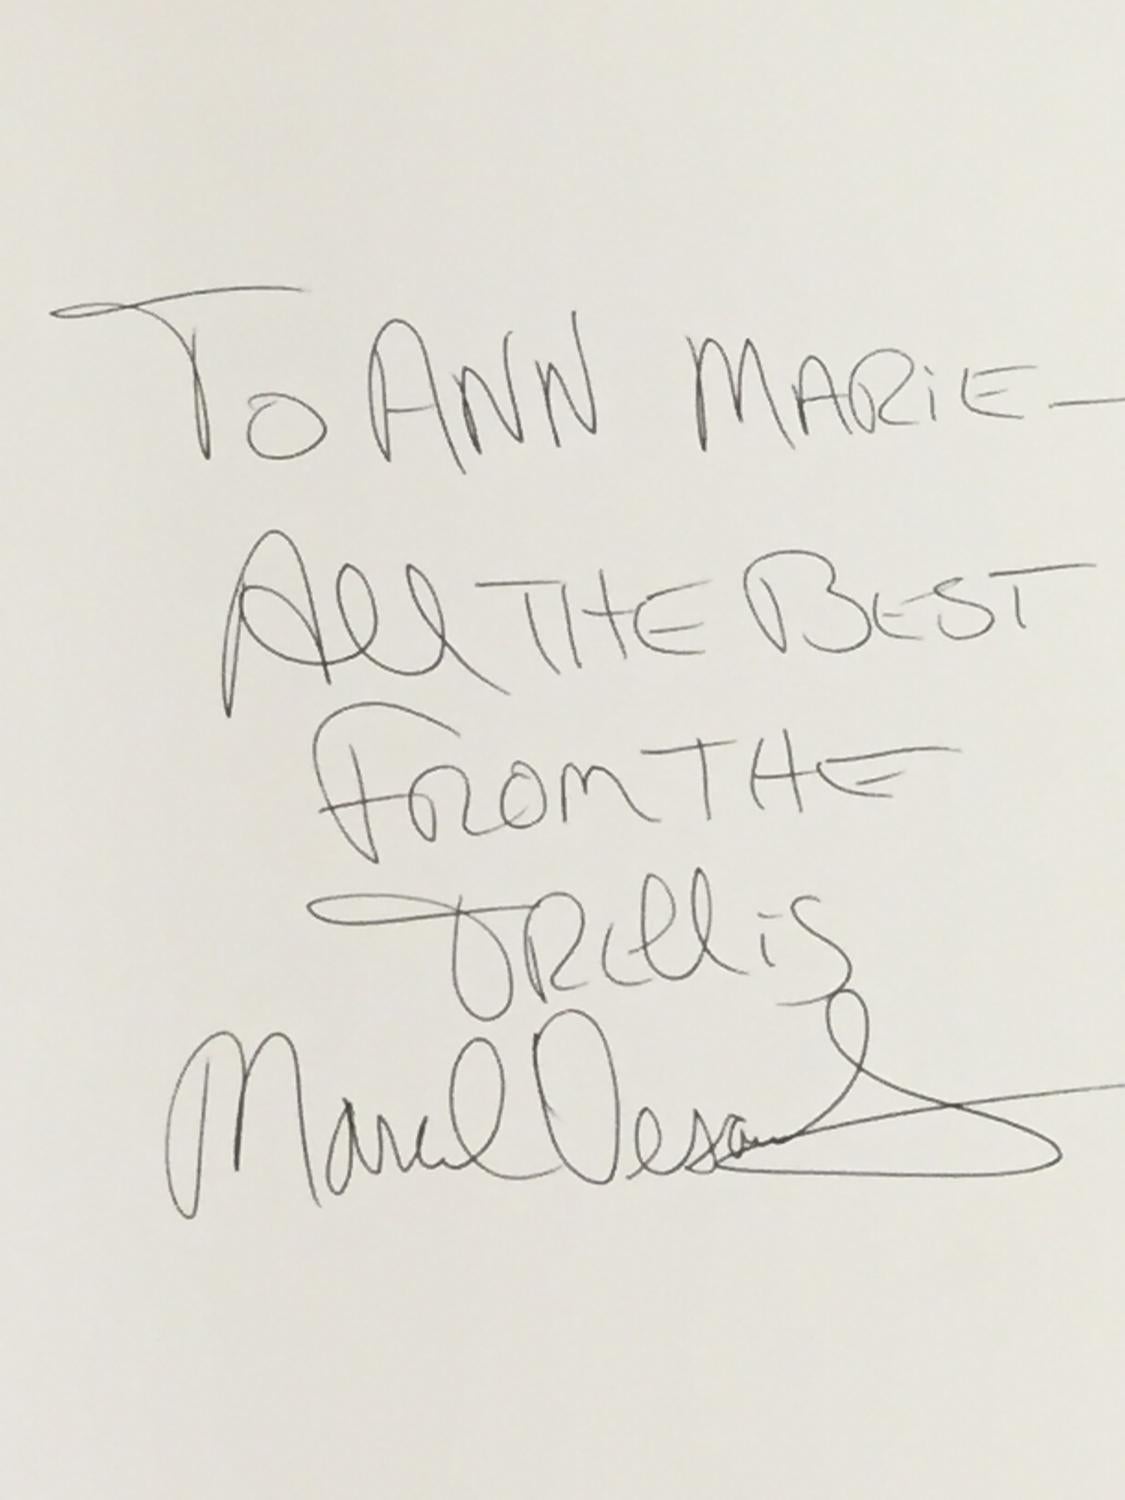 To ANN MARiE—
All THE BEST
FROM THE
TREllis
Marcel Desaul